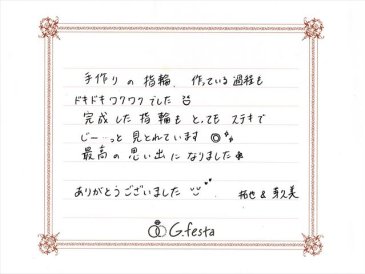 手作りの指輪、作っている過程も
ドキドキワクワクでした
完成した指輪もとってもステキで
じー…っと見とれています
最高の思い出になりました
ありがとうございました 拓也 & 芽久美
G.festa